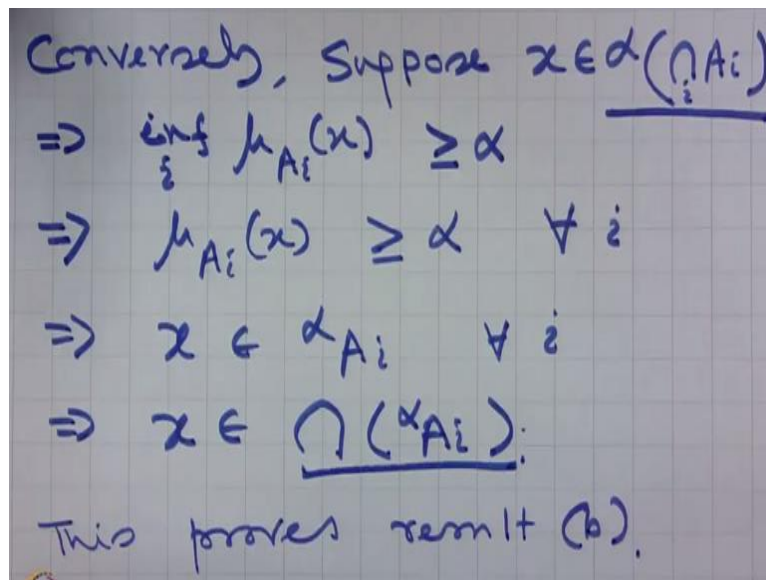 Conversely, Suppose x ∈ ᵅ(⋂ᵢ Aᵢ)
⇒ inf_i μ_{Aᵢ}(x) ≥ α
⇒ μ_{Aᵢ}(x) ≥ α ∀ i
⇒ x ∈ ᵅAᵢ ∀ i
⇒ x ∈ ⋂(ᵅAᵢ).
This proves result (b).